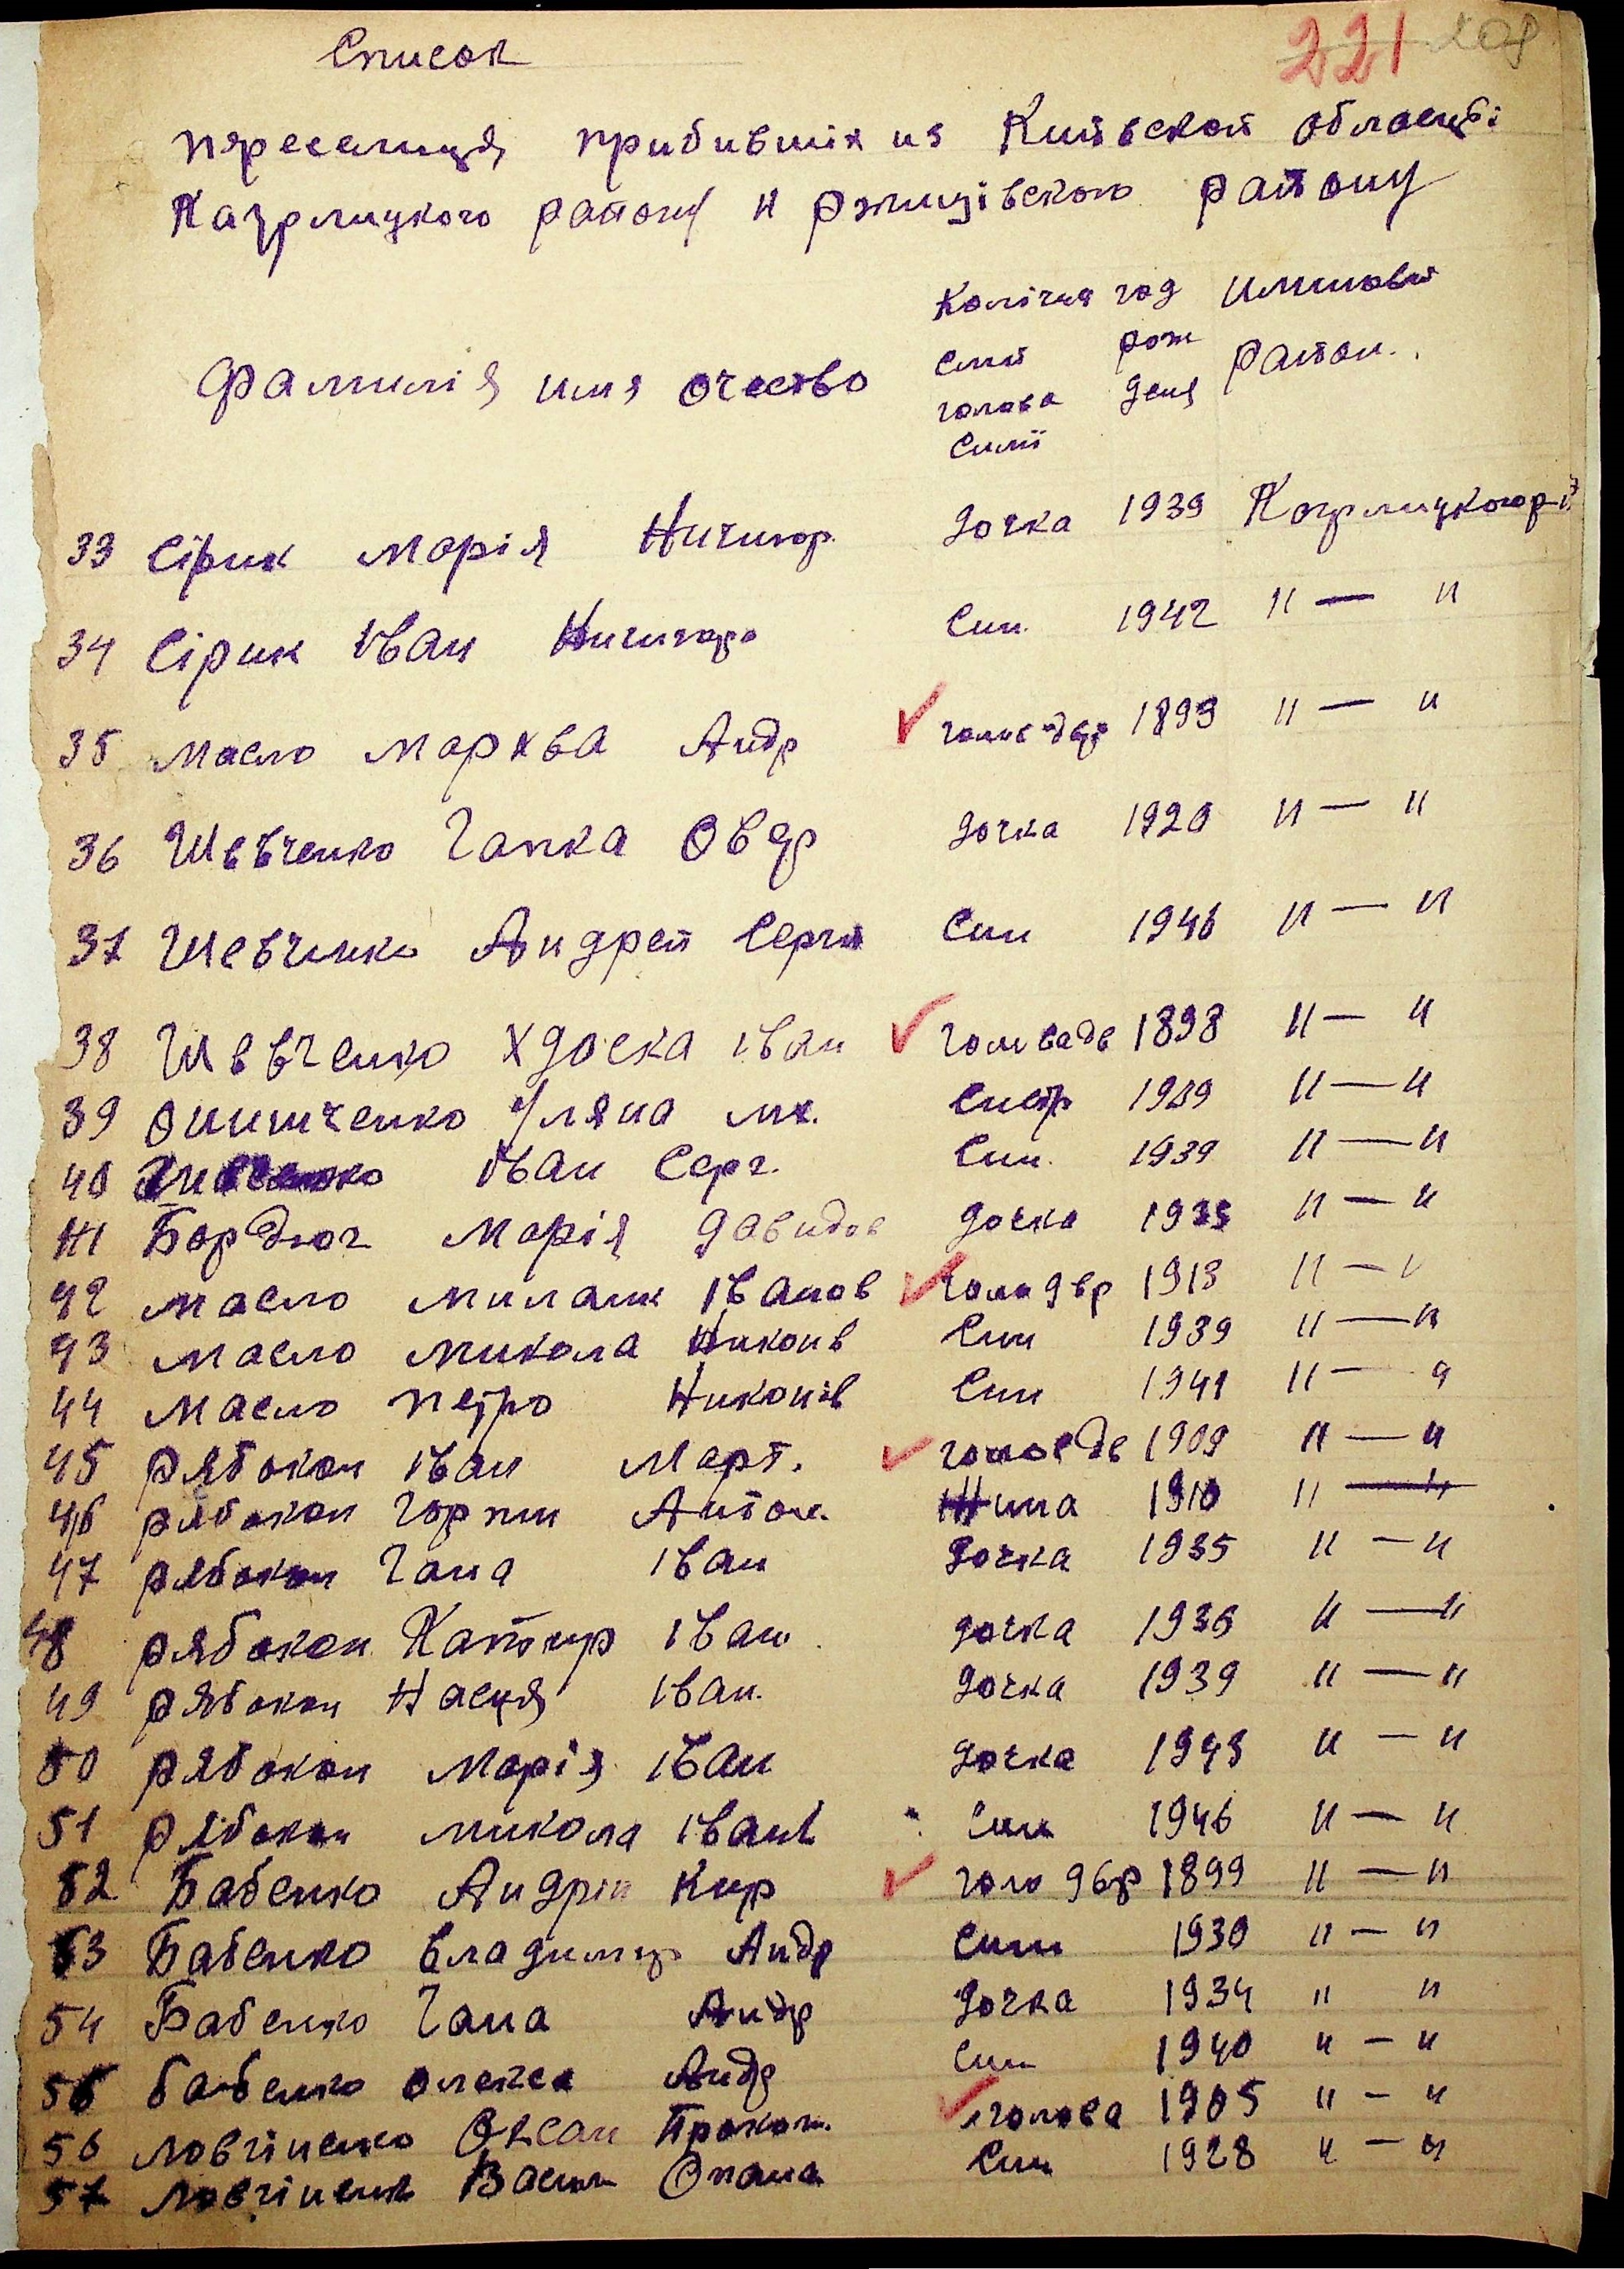 221
Список
пяреселиця прибивших из Київской области
Кагрлицкого району и ржищівского району
Фамилія имя очество Колічия сімй голова Сімії год рож деня Илиновий район.
33 Сірик Марія Ничипор. дочка 1939 Кагрлицкого р-н
34 Сірик Іван Ничипоро Син. 1942 " — "
35 Масло Мархва Андр голов двр 1899 " — "
36 Шевченко Гапка Овдр дочка 1920 " — "
37 Шевченко Андрей Сергій Син 1946 " — "
38 Шевченко Хдоска Іван голова дв 1898 " — "
39 Онищченко Уляна Мх. Систр 1939 " — "
40 Іван Серг. Син. 1939 " — "
41 Бордюг Марія Давидов дочка 1935 " — "
42 Масло Милашк Іванов голо двр 1913 " — "
43 Масло Микола Никонів Син 1939 " — "
44 Масло Петро Никонів Син 1941 " — "
45 Рябокон Іван Март. голов дв 1909 " — "
46 Рябокон Горпин Антон. Жина 1910 " — "
47 Рябокон Гана Іван дочка 1935 " — "
48 Рябокон Катир Іван. дочка 1936 " — "
49 Рябокон Насця Іван. дочка 1939 " — "
50 Рябокон Марія Іван дочка 1943 " — "
51 Рябокон Микола Іванів Син 1946 " — "
52 Бабенко Андрій Кир голо двр 1899 " — "
53 Бабенко Владимир Андр Син 1930 " — "
54 Бабенко Гана Андр дочка 1934 " "
55 Бабенко Олекса Андр Син 1940 " — "
56 Ловгіненко Оксан Прокоп. голова 1905 " — "
57 Ловгіненко Васил Опана Син 1928 " — "